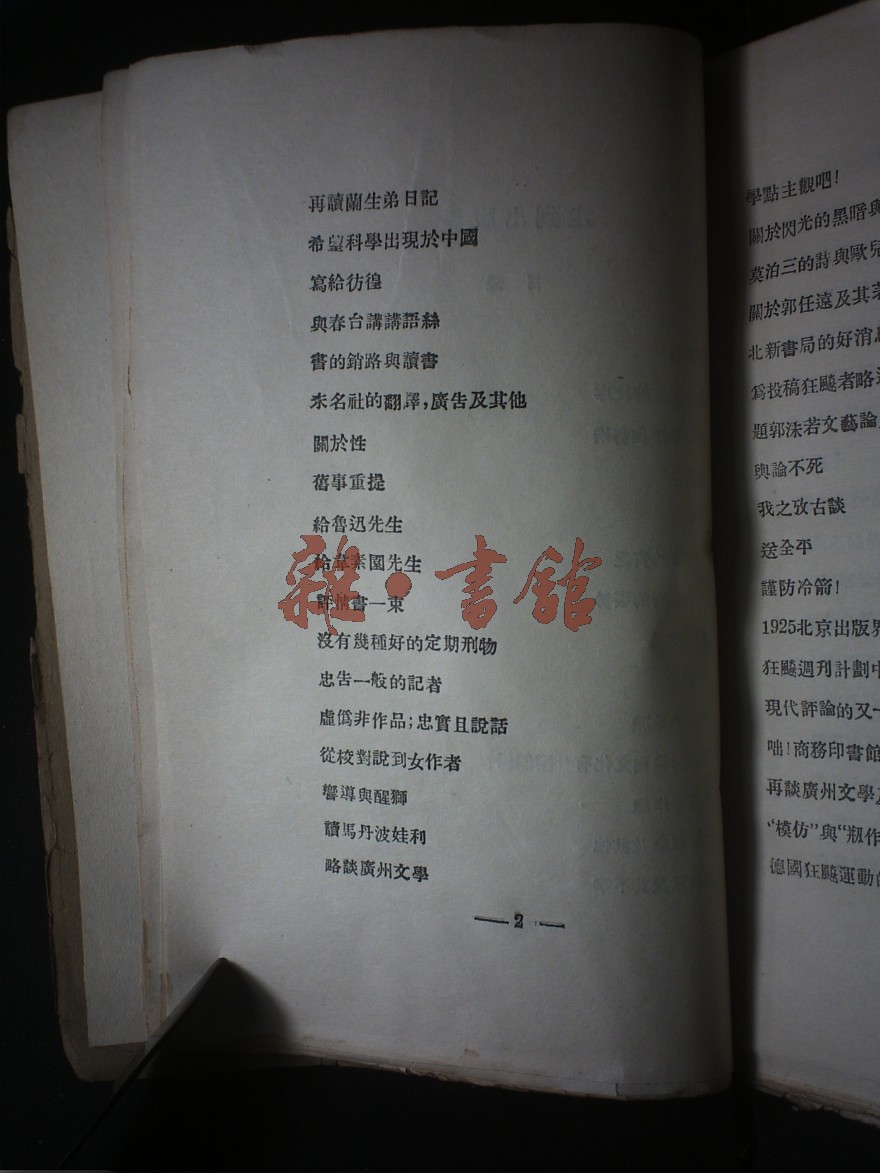 再讀蘭生弟日記
希望科學出現於中國
寫給彷徨
與春台講講語絲
書的銷路與讀書
未名社的翻譯,廣告及其他
關於性
舊事重提
給魯迅先生
給韋素園先生
評情書一束
沒有幾種好的定期刑物
忠告一般的記者
虛僞非作品;忠實且說話
從校對說到女作者
響導與醒獅
讀馬丹波娃利
略談廣州文學
— 2 —
雜·書館
學點主觀吧!
關於閃光的黑暗與
莫泊三的詩與歐兒
關於郭任遠及其
北新書局的好消息
爲投稿狂飇者略
題郭沫若文藝論
輿論不死
我之攷古談
送全平
謹防冷箭!
1925北京出版界
狂飇週刊計劃中
現代評論的又一
咄!商務印書館
再談廣州文學
“模仿”與“剏作
德國狂飇運動的